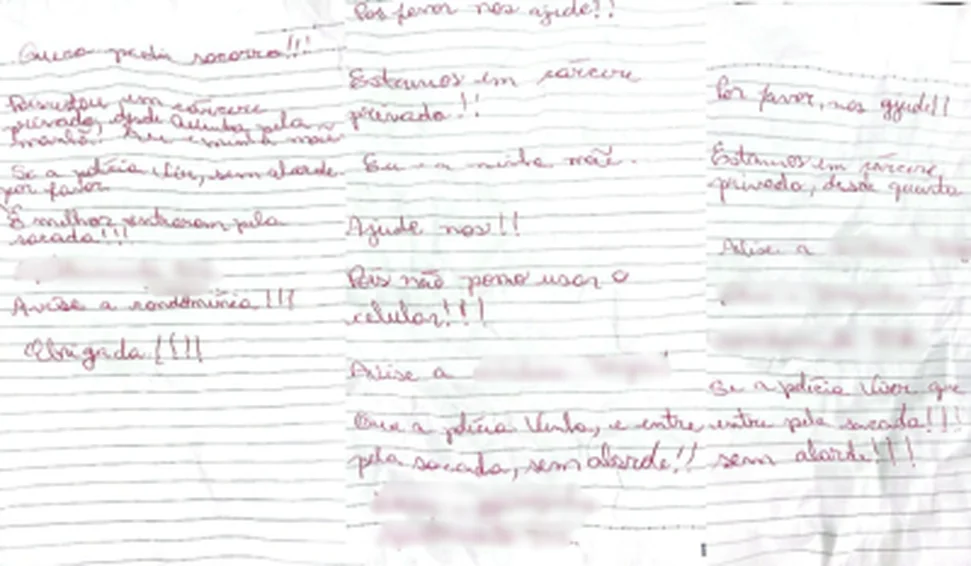 Quero pedir socorro!!!
Pois estou em cárcere
privado, desde Quinta pela
manhã. Eu e minha mãe
Se a polícia vier, sem alarde
por favor
É melhor entrarem pela
sacada!!!
Avise a condomínio!!!
Obrigada!!!!
Por favor nos ajude!!
Estamos em cárcere
privado!!
Eu e a minha mãe.
Ajude nos!!
Pois não posso usar o
celular!!!
Avise a
Que a polícia Venha, e entre
pela sacada, sem alarde!!
Por favor, nos ajude!!
Estamos em cárcere
privado, desde quarta
Avise a
Se a polícia Vier que
entre pela sacada!!!
sem alarde!!!